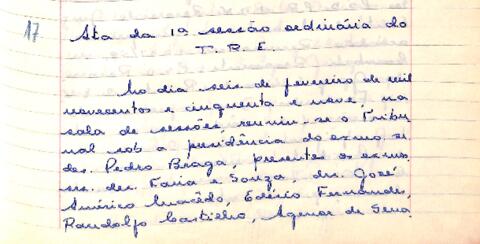 17
Ata da 1ª sessão ordinária do
T. R. E.
No dia seis de fevereiro de mil
novecentos e cinquenta e nove, na
sala de sessões, reuniu-se o Tribu
nal sob a presidência do exmo. sr.
des. Pedro Braga, presentes os exmos.
srs. des. Faria e Souza, drs. José
Américo Macêdo, Edésio Fernandes,
Randolfo Castilho, Agenor de Sena